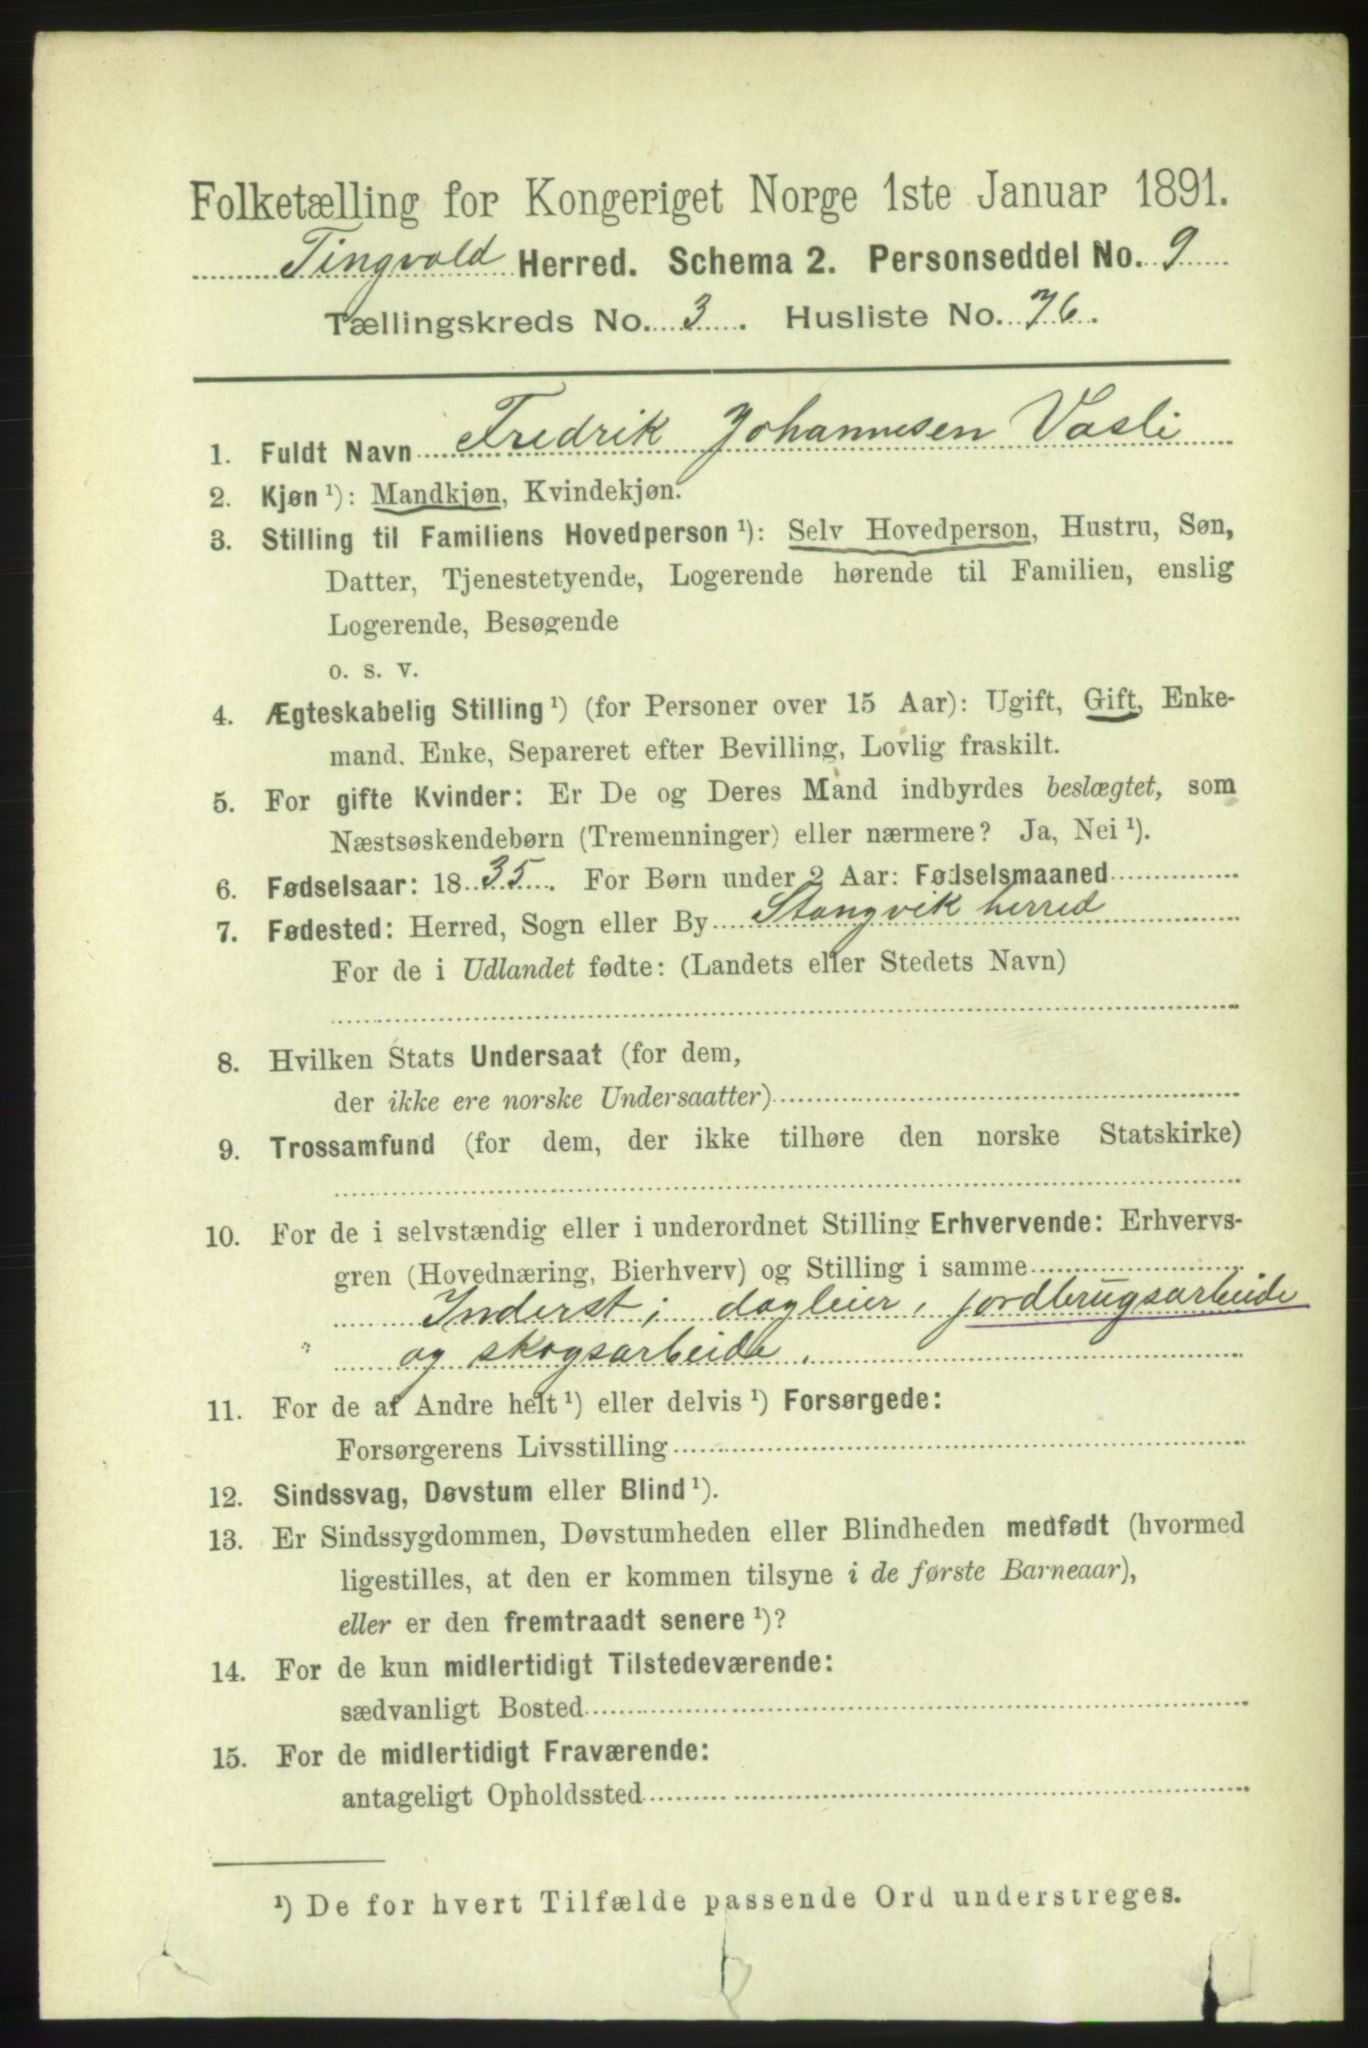 Folketælling for Kongeriget Norge 1ste Januar 1891.
Tingvold Herred. Schema 2. Personseddel No. 9
Tællingskreds No. 3. Husliste No. 76.
1. Fuldt Navn Fredrik Johannesen Vasli
2. Kjøn ¹): Mandkjøn, Kvindekjøn.
3. Stilling til Familiens Hovedperson ¹): Selv Hovedperson, Hustru, Søn,
Datter, Tjenestetyende, Logerende hørende til Familien, enslig
Logerende, Besøgende
o. s. v.
4. Ægteskabelig Stilling ¹) (for Personer over 15 Aar): Ugift, Gift, Enke-
mand. Enke, Separeret efter Bevilling, Lovlig fraskilt.
5. For gifte Kvinder: Er De og Deres Mand indbyrdes beslægtet, som
Næstsøskendebørn (Tremenninger) eller nærmere? Ja, Nei ¹).
6. Fødselsaar: 18 35. For Børn under 2 Aar: Fødselsmaaned
7. Fødested: Herred, Sogn eller By Stangvik herred
For de i Udlandet fødte: (Landets eller Stedets Navn)
8. Hvilken Stats Undersaat (for dem,
der ikke ere norske Undersaatter)
9. Trossamfund (for dem, der ikke tilhøre den norske Statskirke)
10. For de i selvstændig eller i underordnet Stilling Erhvervende: Erhvervs-
gren (Hovednæring, Bierhverv) og Stilling i samme
Inderst; dagleier, jordbrugsarbeide
" og skogsarbeide.
11. For de af Andre helt ¹) eller delvis ¹) Forsørgede:
Forsørgerens Livsstilling
12. Sindssvag, Døvstum eller Blind ¹).
13. Er Sindssygdommen, Døvstumheden eller Blindheden medfødt (hvormed
ligestilles, at den er kommen tilsyne i de første Barneaar),
eller er den fremtraadt senere ¹)?
14. For de kun midlertidigt Tilstedeværende:
sædvanligt Bosted
15. For de midlertidigt Fraværende:
antageligt Opholdssted
¹) De for hvert Tilfælde passende Ord understreges.